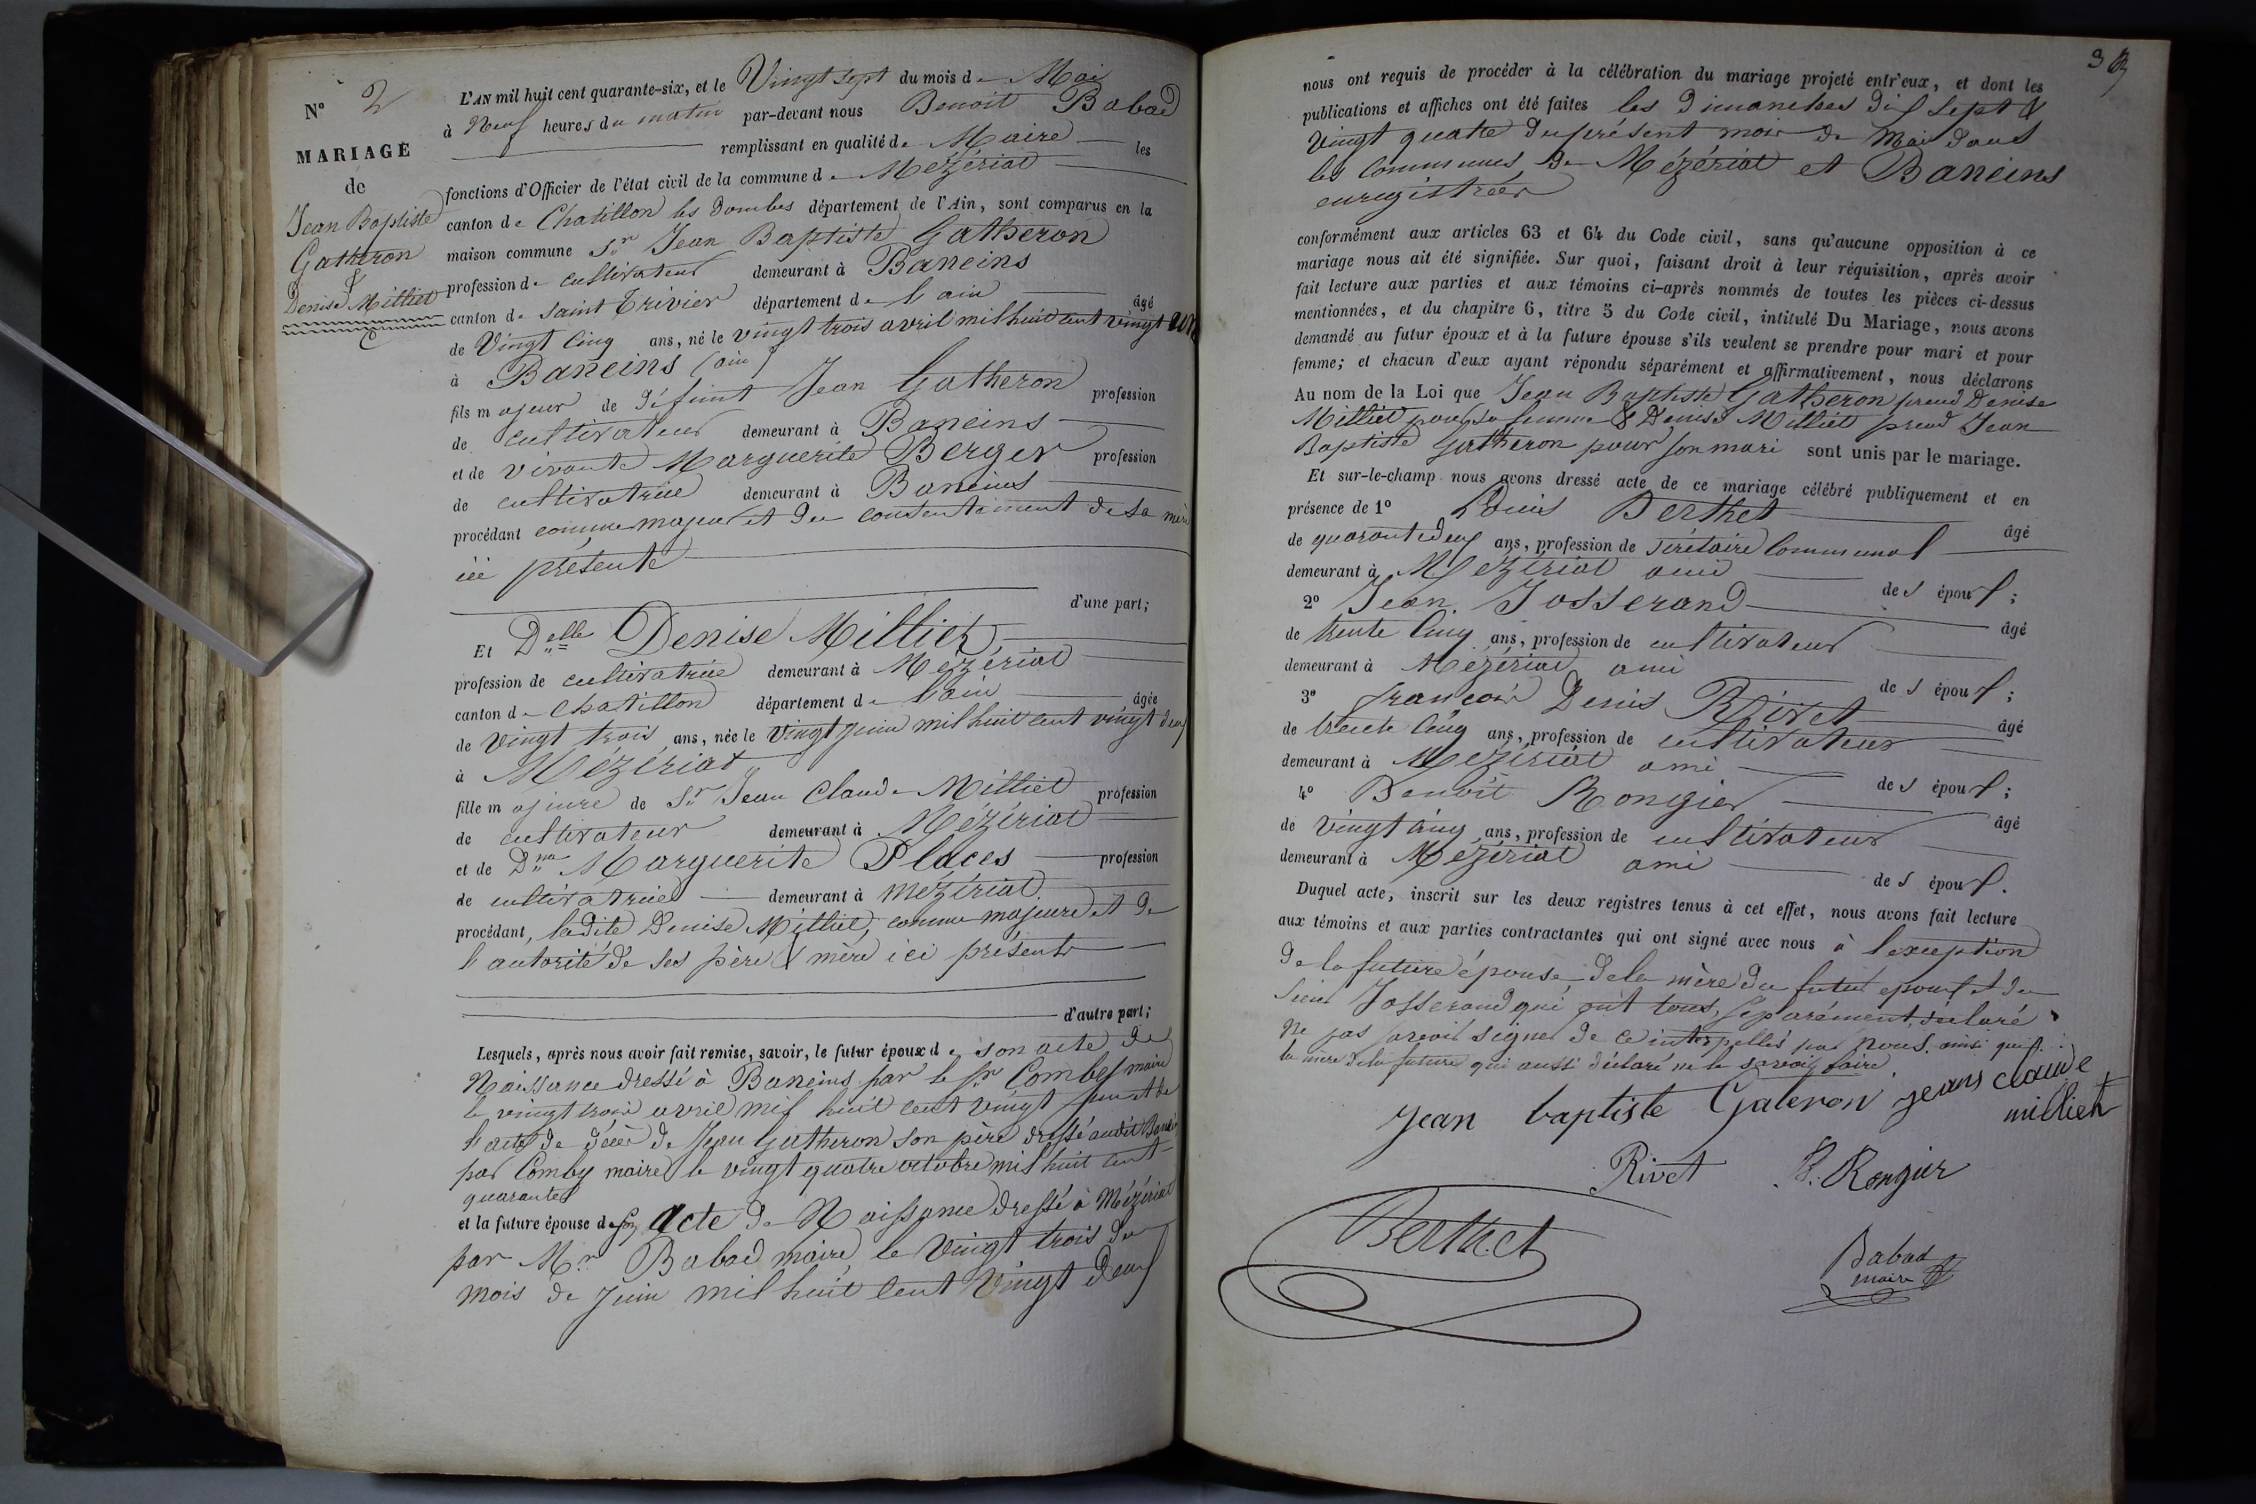 N° 2
MARIAGE
de
Jean Baptiste
Gatheron
&
Denise Milliet
L'AN mil huit cent quarante-six, et le Vingt sept du mois de Mai
à Neuf heures du matin par-devant nous Benoit Babad
remplissant en qualité de Maire les
fonctions d'Officier de l'état civil de la commune de Mézériat
canton de Chatillon les Dombes département de l'Ain, sont comparus en la
maison commune Sr Jean Baptiste Gatheron
profession de cultivateur demeurant à Baneins
canton de Saint Trivier département de l'ain âgé
de Vingt Cinq ans, né le vingt trois avril mil huit cent vingt un
à Baneins (ain)
fils majeur de défunt Jean Gatheron profession
de cultivateur demeurant à Baneins
et de vivante Marguerite Berger profession
de cultivatrice demeurant à Baneins
procédant comme majeur et du consentement de sa mère
ici présente
d'une part;
Et Delle Denise Milliet
profession de cultivatrice demeurant à Mézériat
canton de Chatillon département de l'ain âgée
de vingt trois ans, née le Vingt juin mil huit cent vingt deux
à Mézériat
fille majeure de Sr Jean Claude Milliet profession
de cultivateur demeurant à Mézériat
et de Dme Marguerite Places profession
de cultivatrice demeurant à Mézériat
procédant, ladite Denise Milliet, comme majeure et de
l'autorité de ses père & mère ici présents
d'autre part;
Lesquels, après nous avoir fait remise, savoir, le futur époux de son acte de
Naissance dressé à Baneins par le Sr Combes maire
le vingt trois avril mil huit cent vingt un et de
l'acte de décès de Jean Gatheron son père dressé audit Baneins
par Comby maire le vingt quatre octobre mil huit cent
quarante
et la future épouse de son acte de Naissance dressé à Mézériat
par Mr Babad maire, le Vingt trois du
mois de Juin mil huit cent Vingt deux
nous ont requis de procéder à la célébration du mariage projeté entr'eux, et dont les
publications et affiches ont été faites les dimanches dix sept &
Vingt quatre du présent mois de Mai dans
les Communes de Mézériat et Baneins
enregistrées
conformément aux articles 63 et 64 du Code civil, sans qu'aucune opposition à ce
mariage nous ait été signifiée. Sur quoi, faisant droit à leur réquisition, après avoir
fait lecture aux parties et aux témoins ci-après nommés de toutes les pièces ci-dessus
mentionnées, et du chapitre 6, titre 5 du Code civil, intitulé Du Mariage, nous avons
demandé au futur époux et à la future épouse s'ils veulent se prendre pour mari et pour
femme; et chacun d'eux ayant répondu séparément et affirmativement, nous déclarons
Au nom de la Loi que Jean Baptiste Gatheron prend Denise
Milliet pour sa femme & Denise Milliet prend Jean
Baptiste Gatheron pour son mari sont unis par le mariage.
Et sur-le-champ nous avons dressé acte de ce mariage célébré publiquement et en
présence de 1° Louis Berthet
de quarante deux ans, profession de sécrétaire Communal âgé
demeurant à Mézériat ami des époux;
2° Jean Josserand
de trente Cinq ans, profession de cultivateur âgé
demeurant à Mézériat ami des époux;
3° françois Denis Rivet
de trente Cinq ans, profession de cultivateur âgé
demeurant à Mézériat ami des époux;
4° Benoît Rongier
de vingt cinq ans, profession de cultivateur âgé
demeurant à Mézériat ami des époux.
Duquel acte, inscrit sur les deux registres tenus à cet effet, nous avons fait lecture
aux témoins et aux parties contractantes qui ont signé avec nous à l'exception
de la future épouse, de la mère du futur époux et du
Sieur Josserand qui ont tous, séparément, déclaré
Ne pas savoir signer de ce interpellés par nous. ainsi que
la mère de la future qui aussi déclaré ne le savoir faire
Jean baptiste Gateron jeans claude
milliet
Rivet B. Rongier
Berthet
Babad
maire